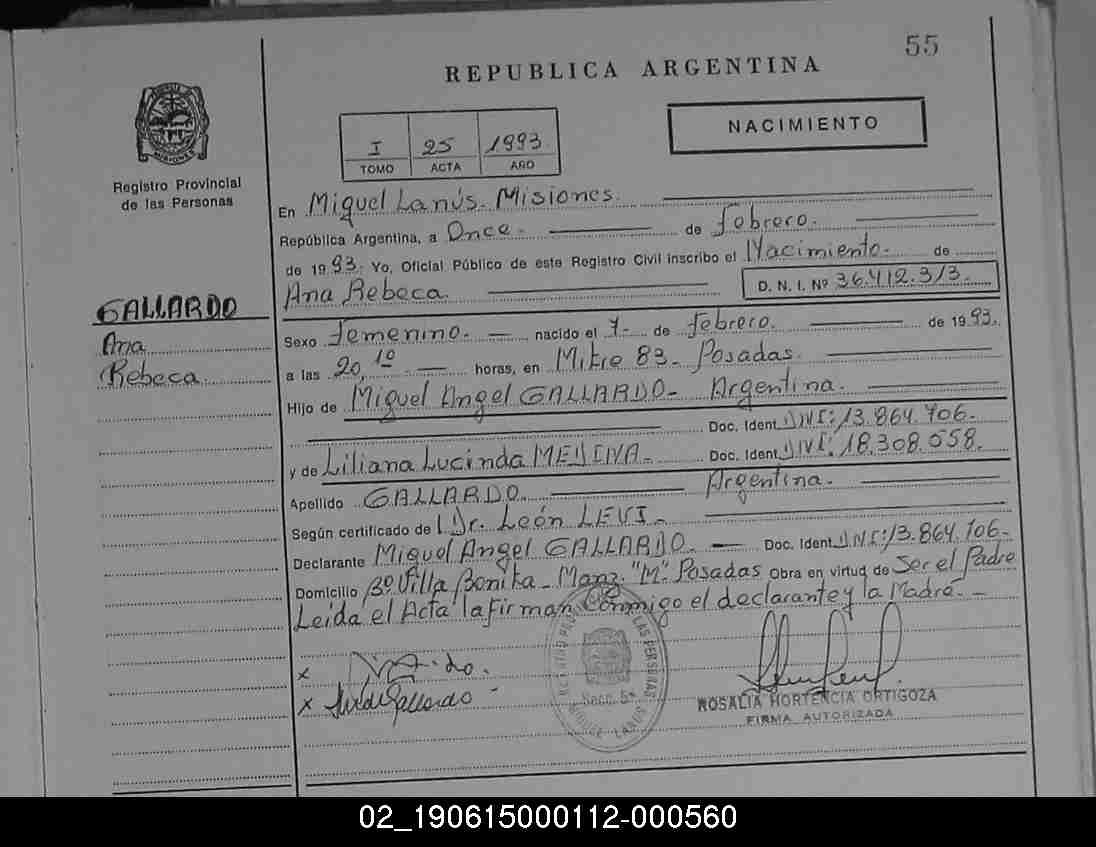 55
REPUBLICA ARGENTINA
NACIMIENTO
I 25 1993
TOMO ACTA AÑO
MISIONES
Registro Provincial
de las Personas
GALLARDO
Ana
Rebeca
En Miguel Lanús. Misiones.
República Argentina, a Once. de febrero.
de 1993. Yo, Oficial Público de este Registro Civil inscribo el Nacimiento. de
Ana Rebeca. D. N. I. Nº 36.412.313.
Sexo femenino. nacido el 7 de febrero. de 1993.
a las 20,10 horas, en Mitre 83 - Posadas.
Hijo de Miguel Angel GALLARDO - Argentina.
Doc. Ident. DNI: 13.864.706.
y de Liliana Lucinda MEDINA - Doc. Ident. DNI: 18.308.558.
Argentina.
Apellido GALLARDO.
Según certificado de Dr. León LEVI -
Declarante Miguel Angel GALLARDO. - Doc. Ident. DNI: 13.864.706-
Domicilio Bº Villa Bonita - Manz. "M". Posadas Obra en virtud de Ser el Padre
Leída el Acta la firman conmigo el declarante y la Madre. -
x
x Gallardo -
LAS PERSONAS
Secc. 5ª
ROSALIA HORTENCIA ORTIGOZA
FIRMA AUTORIZADA
02_190615000112-000560